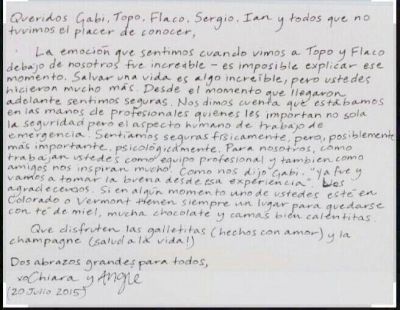 Queridos Gabi, Topo, Flaco, Sergio, Ian y todos que no
tuvimos el placer de conocer,
La emoción que sentimos cuando vimos a Topo y Flaco
debajo de nosotros fue increáble - es imposible explicar ese
momento. Salvar una vida es algo increíble, pero ustedes
hicieron mucho más. Desde el momento que llegaron
adelante sentimos seguras. Nos dimos cuenta que estábamos
en las manos de profesionales quienes les importan no sola
la seguridad pero el aspecto humano de trabajo de
emergencia. Sentíamos seguras físicamente, pero, posiblemente
más importante, psicológicamente. Para nosotros, como
trabajan ustedes como equipo profesional y tambien como
amigos nos inspiran mucho. Como nos dijo Gabi, "ya fue y
vamos a tomar la buena desde esa experiencia". Les
agradecemos. Si en algún momento uno de ustedes esté en
Colorado o Vermont tienen siempre un lugar para quedarse
con té de miel, mucha chocolate y camas bien calentitas.
Que disfruten las galletitas (hechos con amor) y la
champagne (salud a la vida!)
Dos abrazos grandes para todos,
xoChiara y Angie
(20 Julio 2015)